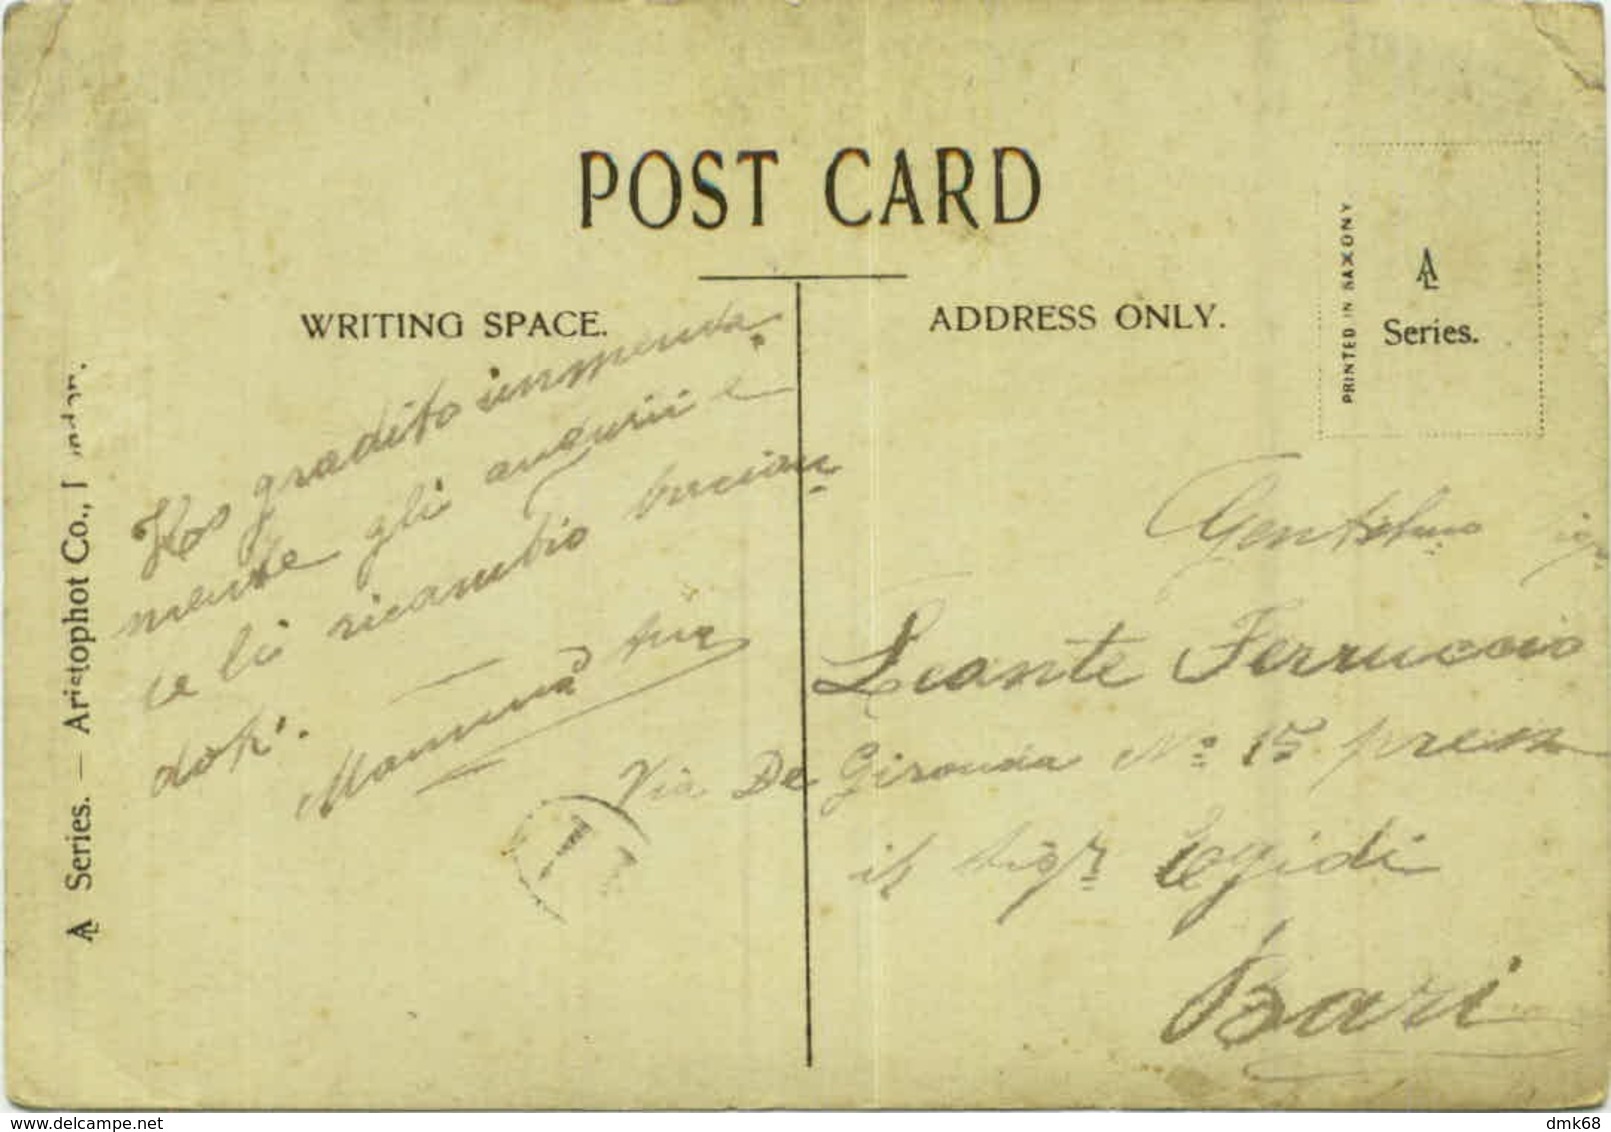 POST CARD
WRITING SPACE.
ADDRESS ONLY.
PRINTED IN SAXONY
AL
Series.
AL Series. — Aristophot Co., London.
Ho gradito immensa
mente gli augurii e
te li ricambio bacian
doti.
Mamma tua
Gentilmo Sigr
Leante Ferruccio
Via De Gironda No 15 presso
il Sigr Egidi
Bari
delcampe.net
dmk68